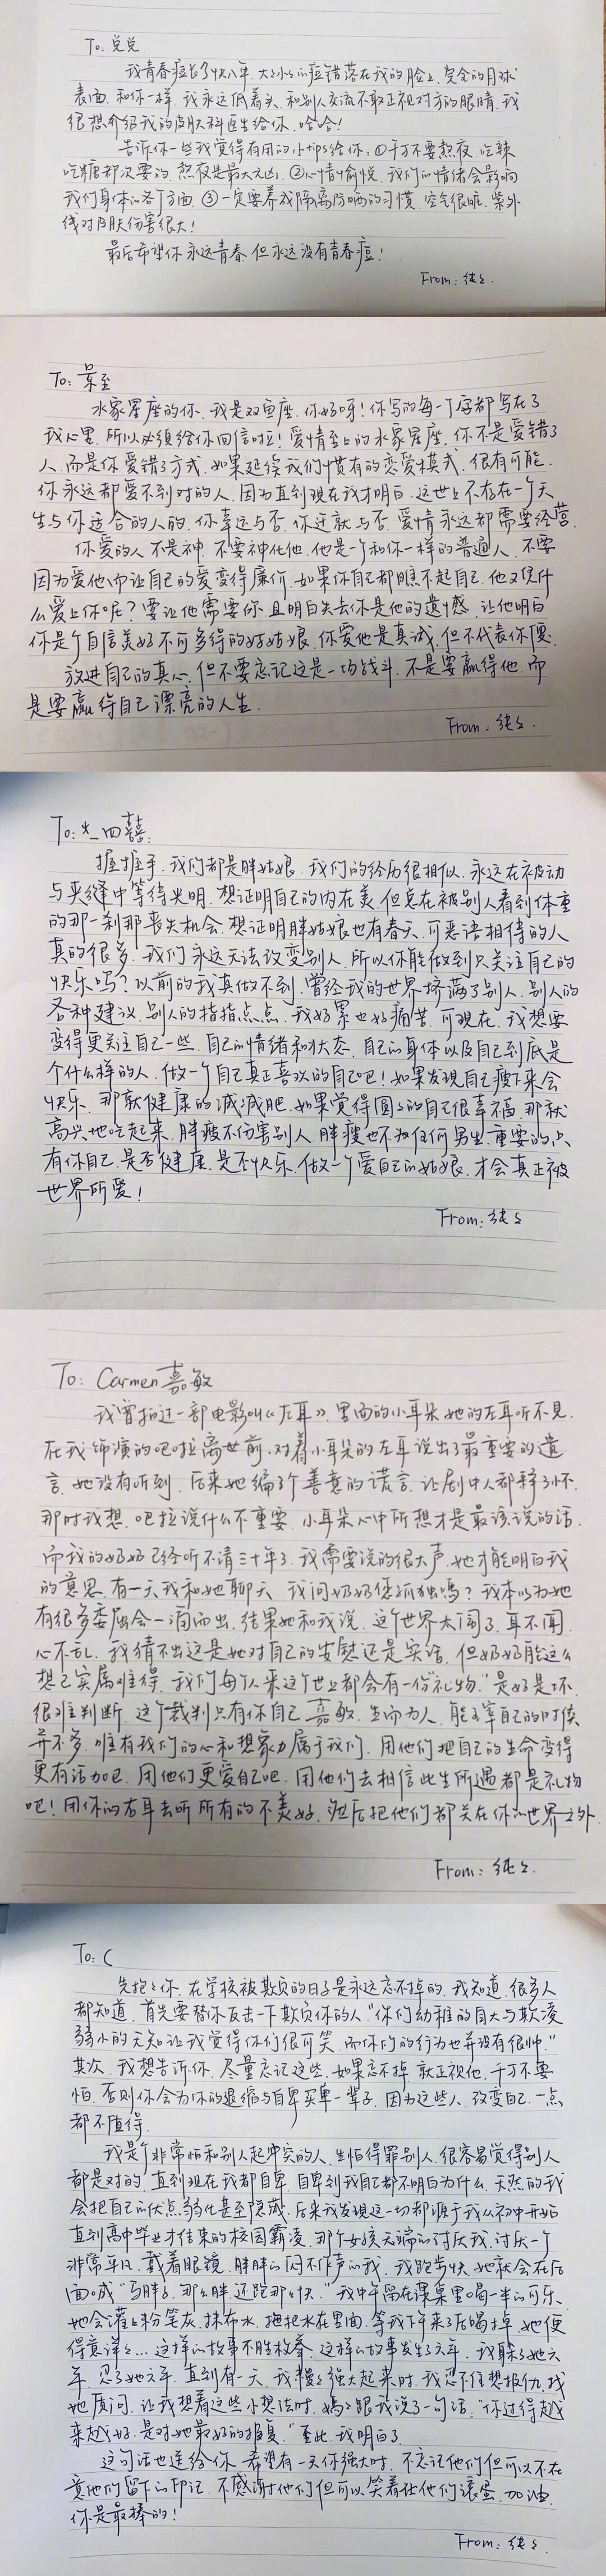 To: 兑兑
我青春痘长了快八年.大大小小的痘错落在我的脸上.完全的月球
表面.和你一样.我永远低着头.和别人交流不敢正视对方的眼睛.我
很想介绍我的皮肤科医生给你.哈哈!
告诉你一些我觉得有用的小tips给你:①千万不要熬夜.吃辣
吃糖都次要的.熬夜是最大元凶.②心情愉悦.我们的情绪会影响
我们身体的各个方面.③一定要养成隔离防晒的习惯.空气很脏.紫外
线对皮肤伤害很大!
最后希望你永远青春.但永远没有青春痘!
From: 纯纯.
To: 景至
水象星座的你.我是双鱼座.你好呀!你写的每一个字都写在了
我心里.所以必须给你回信啦!爱情至上的水象星座.你不是爱错了
人.而是你爱错了方式.如果延续我们惯有的恋爱模式.很有可能.
你永远都爱不到对的人.因为直到现在我才明白.这世上不存在一个天
生与你适合的人的.你幸运与否.你迁就与否.爱情永远都需要经营.
你爱的人不是神.不要神化他.他是一个和你一样的普通人.不要
因为爱他而让自己的爱变得廉价.如果你自己都瞧不起自己.他又凭什
么爱上你呢?要让他需要你.且明白失去你是他的遗憾.让他明白
你是个自信美好不可多得的好姑娘.你爱他是真诚.但不代表你傻.
放进自己的真心.但不要忘记这是一场战斗.不是要赢得他.而
是要赢得自己漂亮的人生.
From: 纯纯.
To: *_四囍:
握握手.我们都是胖姑娘.我们的经历很相似.永远在被动
与夹缝中等待光明.想证明自己的内在美.但总在被别人看到体重
的那一刹那丧失机会.想证明胖姑娘也有春天.可恶语相待的人
真的很多.我们永远无法改变别人.所以你能做到只关注自己的
快乐吗?以前的我真做不到.曾经我的世界挤满了别人.别人的
各种建议.别人的指指点点.我好累也好痛苦.可现在.我想要
变得更关注自己一些.自己的情绪和状态.自己的身体以及自己到底是
个什么样的人.做一个自己真正喜欢的自己吧!如果发现自己瘦下来会
快乐.那就健康的减减肥.如果觉得圆圆的自己很幸福.那就
高兴地吃起来.胖瘦不伤害别人.胖瘦也不为任何男生.重要的只
有你自己.是否健康.是否快乐.做一个爱自己的姑娘.才会真正被
世界所爱!
From: 纯纯
To: Carmen嘉敏
我曾拍过一部电影叫《左耳》.里面的小耳朵她的左耳听不见.
在我饰演的吧啦离世前.对着小耳朵的左耳说出了最重要的遗
言.她没有听到.后来她编了个善意的谎言.让剧中人都释了怀.
那时我想.吧啦说什么不重要.小耳朵心中所想才是最该说的话.
而我的奶奶已经听不清三十年了.我需要说的很大声.她才能明白我
的意思.有一天我和她聊天.我问奶奶您孤独吗?我本以为她
有很多委屈会一涌而出.结果她和我说.这个世界太闹了.耳不闻.
心不乱.我猜不出这是她对自己的安慰还是实话.但奶奶能这么
想已实属难得.我们每个人来这个世上都会有一份“礼物.”是好是坏.
很难判断.这个裁判只有你自己.嘉敏.生而为人.能主宰自己的时候
并不多.唯有我们的心和想象力属于我们.用他们把自己的生命变得
更有活力吧.用他们更爱自己吧.用他们去相信此生所遇都是礼物
吧!用你的右耳去听所有的不美好.然后把他们都关在你的世界之外.
From: 纯纯.
To: C
先抱抱你.在学校被欺负的日子是永远忘不掉的.我知道.很多人
都知道.首先要替你反击一下欺负你的人“你们幼稚的自大与欺凌
弱小的无知让我觉得你们很可笑.而你们的行为也并没有很帅.”
其次.我想告诉你.尽量忘记这些.如果忘不掉.就正视他.千万不要
怕.否则你会为你的退缩与自卑买单一辈子.因为这些人.改变自己.一点
都不值得.
我是个非常怕和别人起冲突的人.生怕得罪别人.很容易觉得别人
都是对的.直到现在我都自卑.自卑到我自己都不明白为什么.天然的我
会把自己的优点弱化甚至隐藏.后来我发现这一切都源于我从初中开始
直到高中毕业才结束的校园霸凌.那个女孩无端的讨厌我.讨厌一个
非常平凡.戴着眼镜.胖胖的闷不作声的我.我跑步快.她就会在后
面喊“马胖子.那么胖还跑那么快.”我中午留在课桌里喝一半的可乐.
她会灌上粉笔灰.抹布水.拖把水在里面.等我下午来了后喝掉.她便
得意洋洋...这样的故事不胜枚举.这样的故事发生了六年.我躲了她六
年.忍了她六年.直到有一天.我慢慢强大起来时.我忍不住想报仇.找
她质问.让我想着这些小想法时.妈妈跟我说了一句话.“你过得越
来越好.是对她最好的报复.”至此.我明白了.
这句话也送给你.希望有一天你强大时.不忘记他们但可以不在
意他们留下的印记.不感谢他们但可以笑着让他们滚蛋.加油.
你是最棒的!
From: 纯纯.